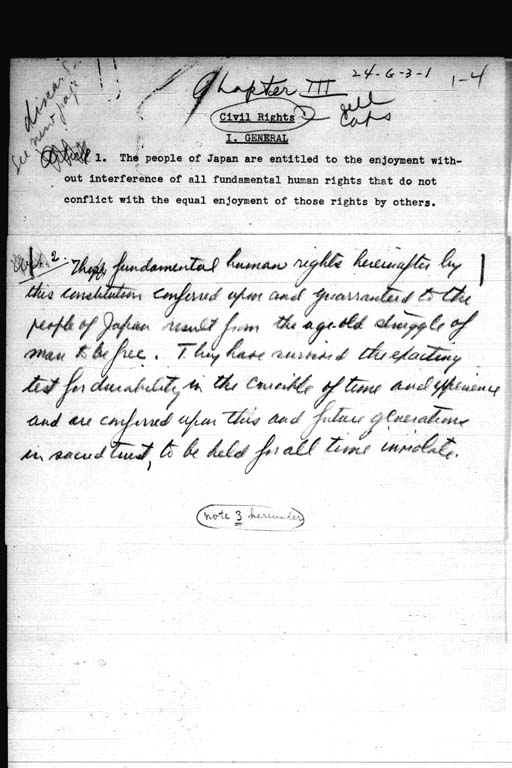 discard
see new page
Chapter III
24-G-3-1
1-4
Civil Rights
all caps
I. GENERAL
Article 1. The people of Japan are entitled to the enjoyment with-
out interference of all fundamental human rights that do not
conflict with the equal enjoyment of those rights by others.
Art. 2. The fundamental human rights hereinafter by
this constitution conferred upon and guarranteed to the
people of Japan result from the age old struggle of
man to be free. They have survived the exacting
test for durability in the crucible of time and experience
and are conferred upon this and future generations
in sacred trust, to be held for all time inviolate.
note 3 hereunder